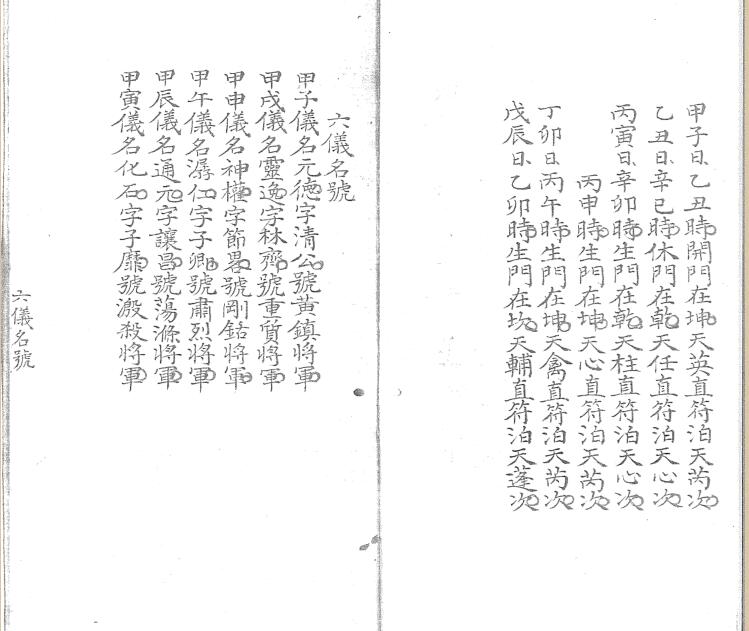 甲子日乙丑時開門在坤天英直符泊天芮次
乙丑日辛巳時休門在乾天任直符泊天心次
丙寅日辛卯時生門在乾天柱直符泊天心次
丙申時生門在坤天心直符泊天芮次
丁卯日丙午時生門在坤天禽直符泊天芮次
戊辰日乙卯時生門在坎天輔直符泊天蓬次
六儀名號
甲子儀名元德字清公號黃鎮將軍
甲戌儀名靈逸字秝齊號重質將軍
甲申儀名神權字節畧號剛鉐將軍
甲午儀名潺仁字子卿號肅烈將軍
甲辰儀名通元字讓昌號蕩滌將軍
甲寅儀名化石字子靡號激殺將軍
六儀名號